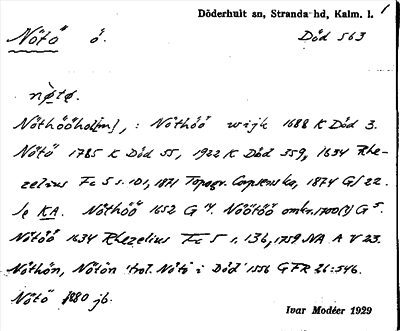 Döderhult sn, Stranda hd, Kalm. l. 1
Nötö ö. Död 563
nø̀tø.
Nöthööhol[m], : Nöthöö wijk 1688 K Död 3.
Nötö 1785 K Död 55, 1922 K Död 359, 1634 Rhe-
zelius Fc 5 s. 101, 1871 Topogr. Corpsens ka, 1874 Gf 22.
Je KA. Nöthöö 1652 G 4. Nöötöö omkr. 1700(?) G 5.
Nötöö 1634 Rhezelius Fc 5 s. 136, 1759 NA A V 23.
Nöthön, Nötön trol. Nötö i Död 1556 GFR 26:546.
Nötö 1880 jb.
Ivar Modéer 1929